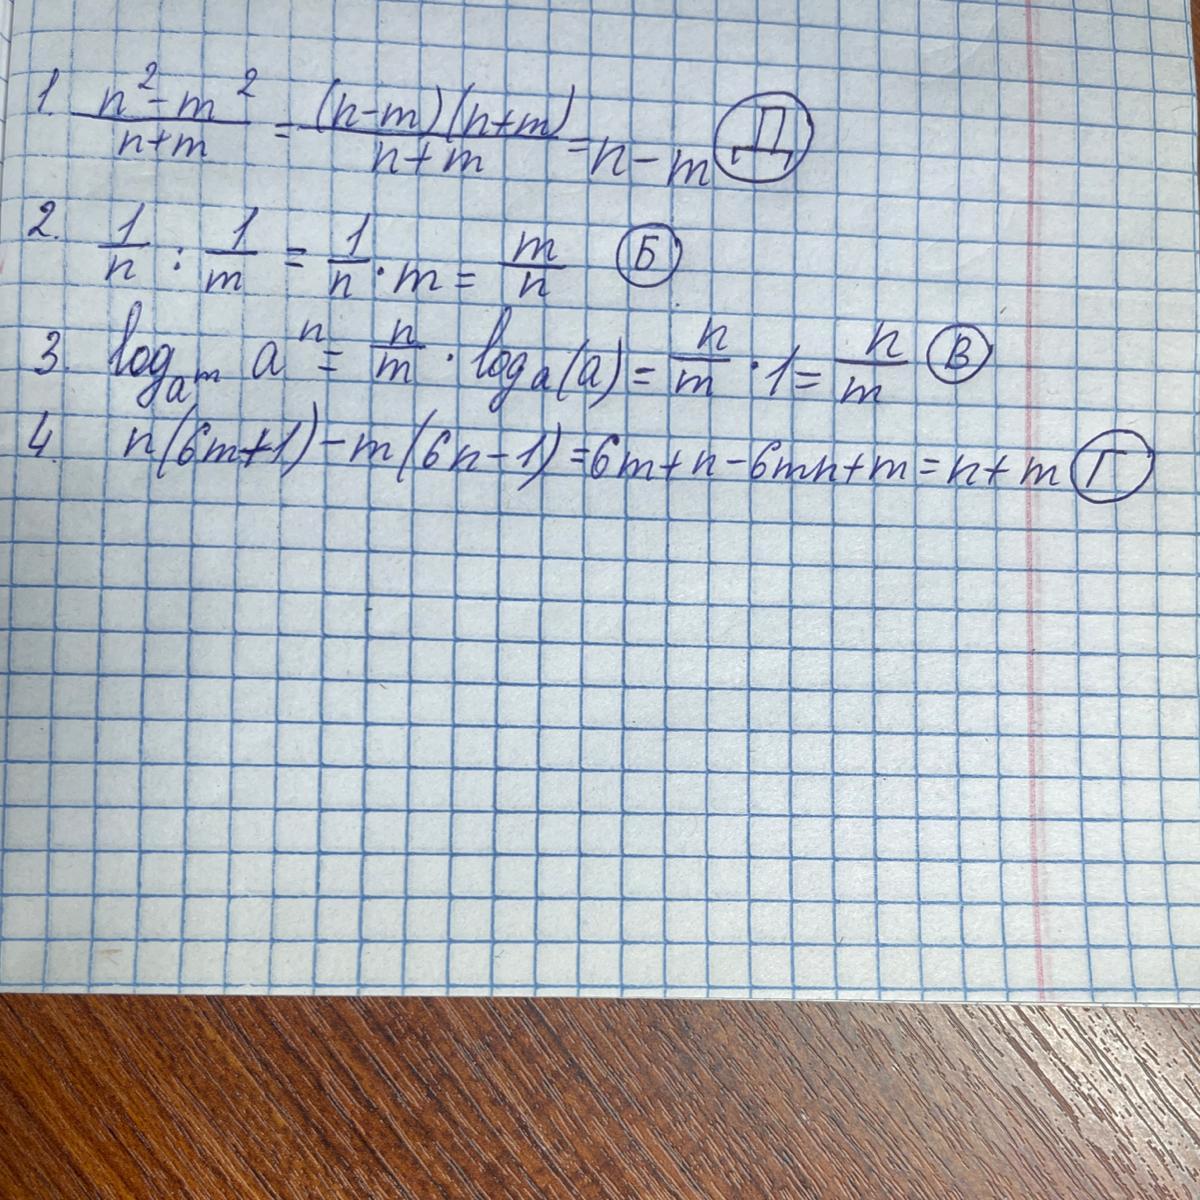 1. n²-m²/n+m = (n-m)(n+m)/n+m = n-m Д
2. 1/n : 1/m = 1/n · m = m/n Б
3. log_a^m a^n = n/m · log_a(a) = n/m · 1 = n/m В
4. n(6m+1)-m(6n-1)=6m+n-6mn+m=n+m Г